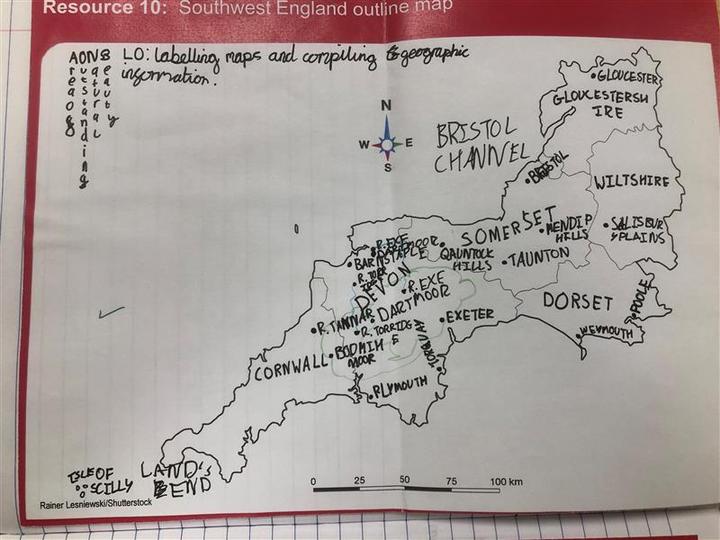 Resource 10: Southwest England outline map
AONB
Area of
outstanding
natural
beauty
LO: Labelling maps and compiling geographic
information.
N
W E
S
BRISTOL
CHANNEL
GLOUCESTER
GLOUCESTERSH
IRE
BRISTOL
WILTSHIRE
SALISBUR
Y PLAINS
SOMERSET
MENDIP
HILLS
QAUNTOCK
HILLS
TAUNTON
R.EXE
BARNSTAPLE
DEVON
R.EXE
DARTMOOR
R.TAMAR
R.TORRIDG
E
TORBAY
EXETER
DORSET
POOLE
WEYMOUTH
CORNWALL
BODMIN
MOOR
PLYMOUTH
LAND'S
END
ISLE OF
SCILLY
0 25 50 75 100 km
Rainer Lesniewski/Shutterstock